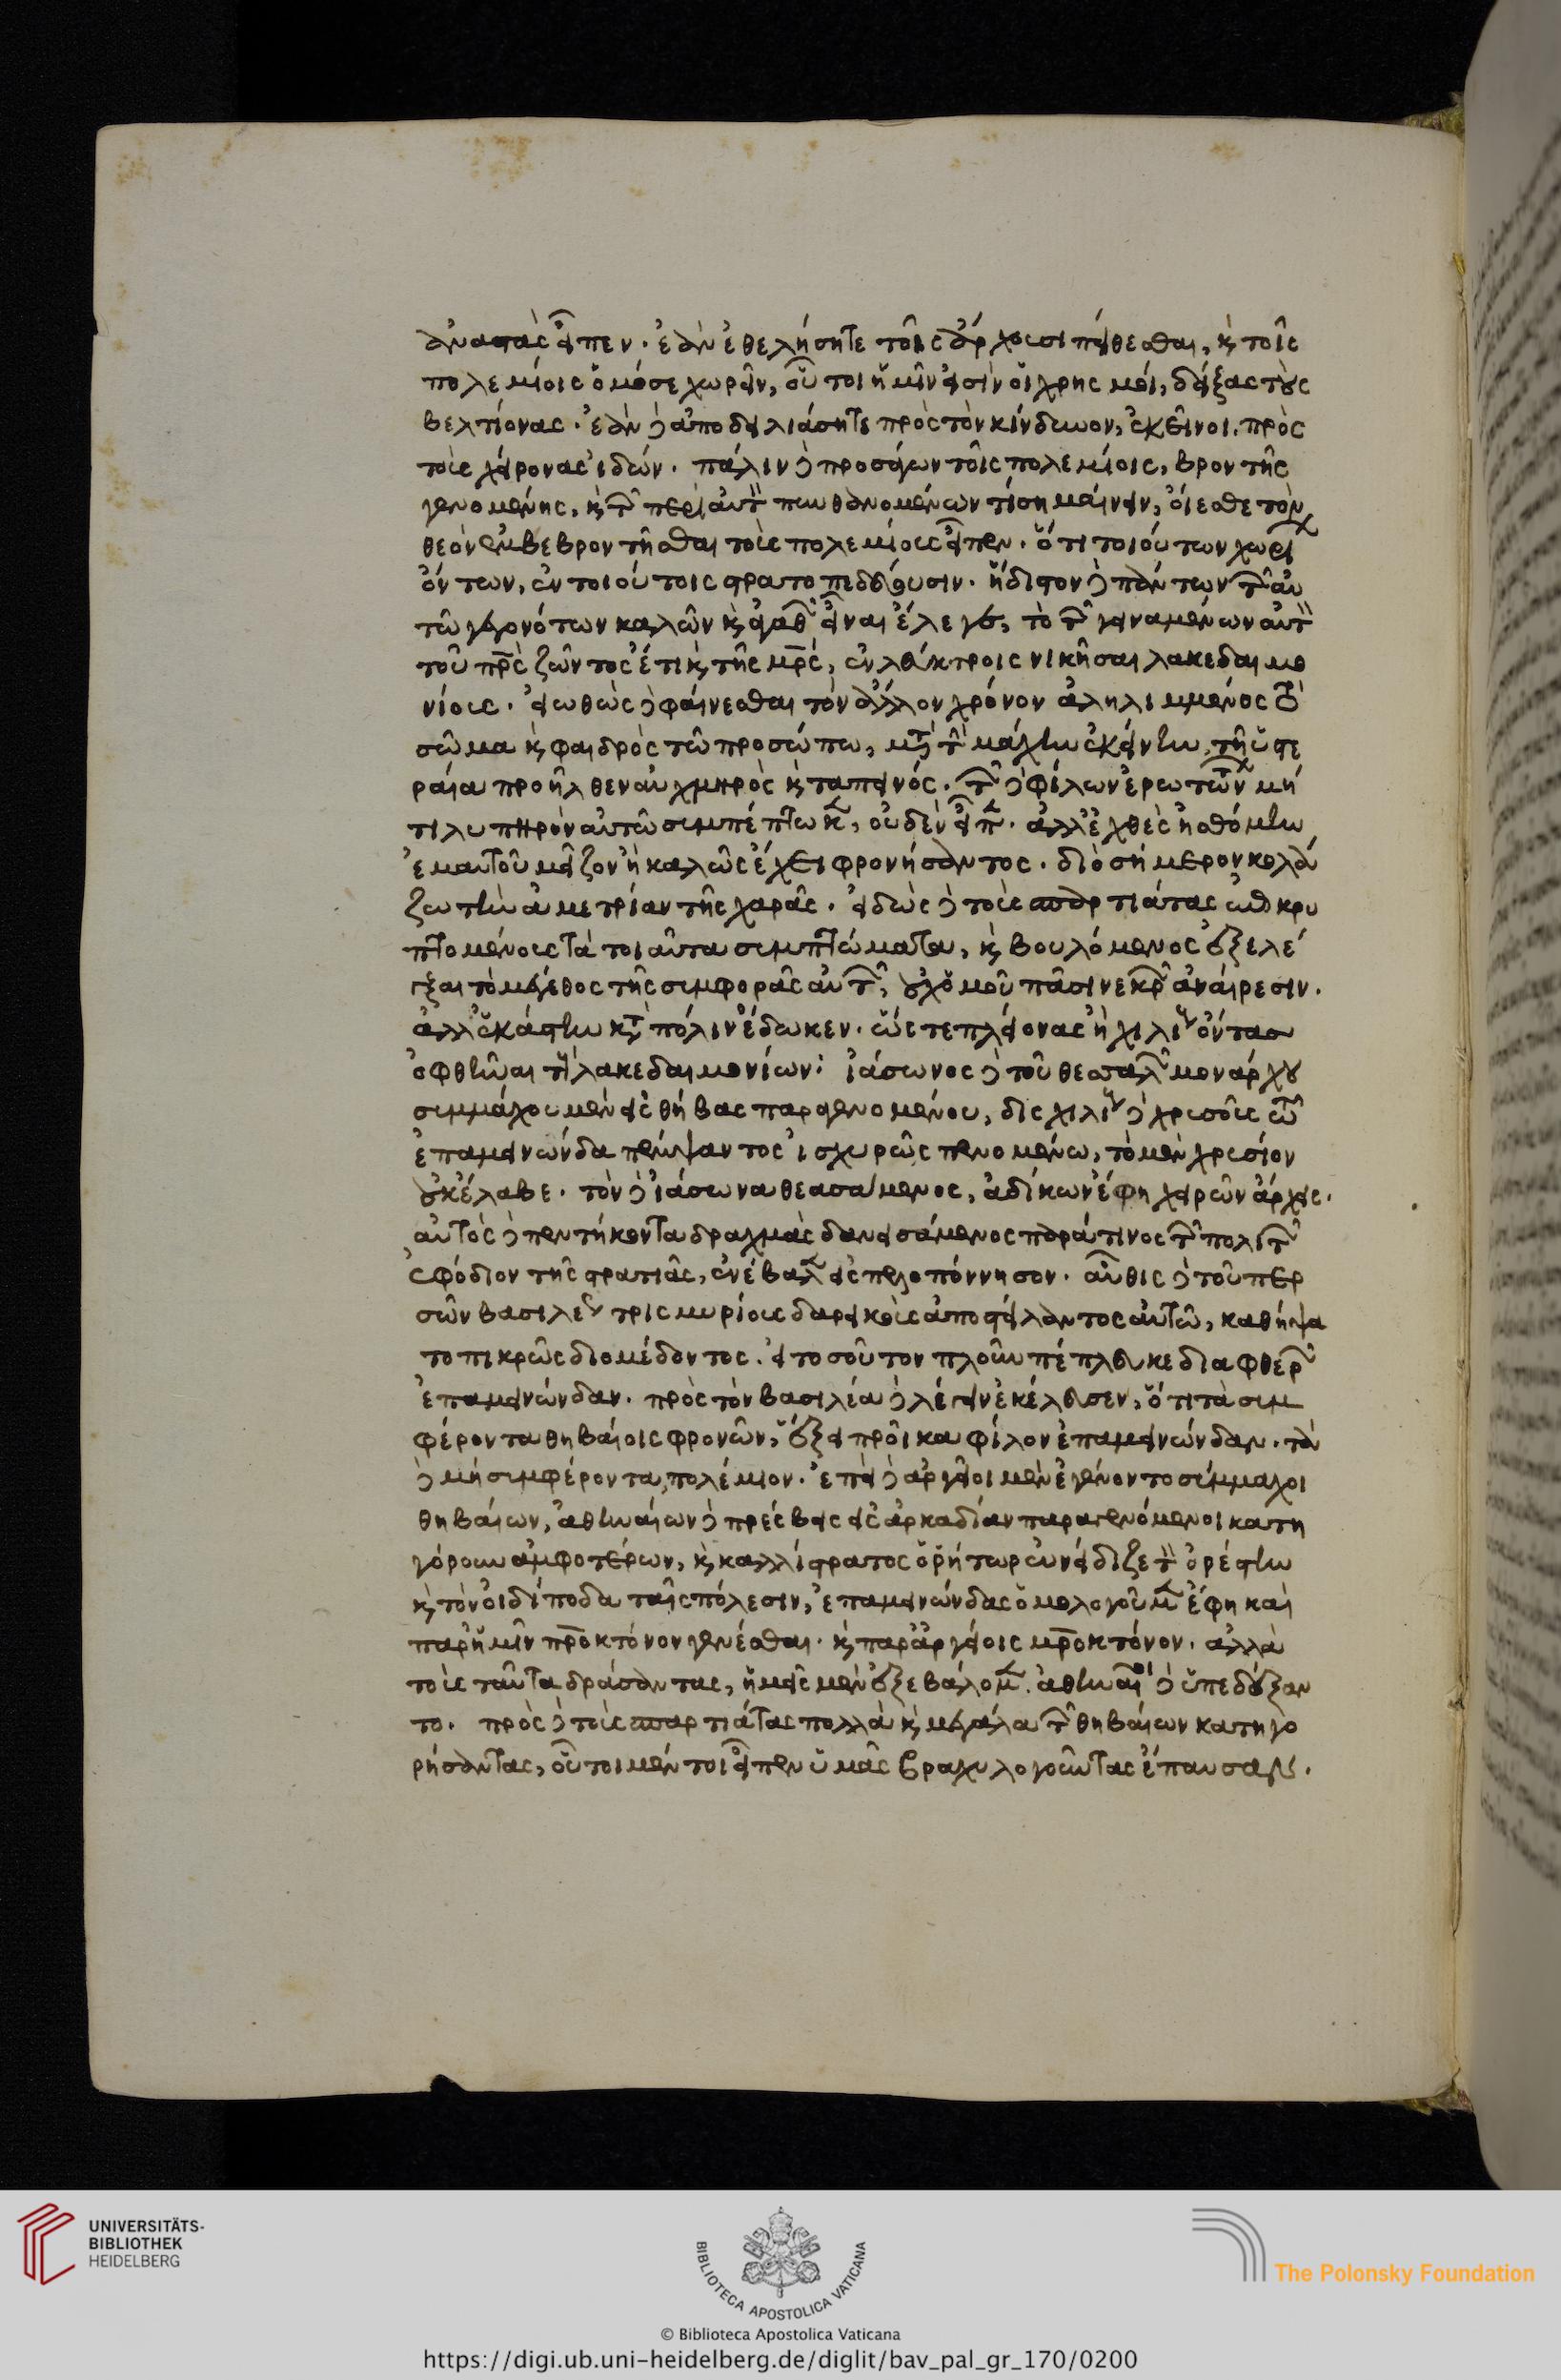 ἀναστὰς εἶπεν. ἐὰν ἐθελήσητε τοῖς ἄρχουσι πείθεσθαι, κ̀ τοῖς
πολεμίοις ὁμόσε χωρεῖν, οὗτοι ἡμῖν εἰσὶν οἱ χρησμοί, δείξας τοὺς
βελτίονας. ἐὰν δὲ ἀποδειλιάσητε πρὸς τὸν κίνδυνον, ἐκεῖνοι. πρὸς
τοὺς χείρονας ἰδών. πάλιν δὲ προσάγων τοῖς πολεμίοις, βροντῆς
γενομένης, κ̀ τῶν περὶ αὐτὸν πυνθανομένων τί σημαίνειν, οἴεσθε τὸν
θεὸν ἐμβεβροντῆσθαι τοὺς πολεμίους εἶπεν. ὅτι τοιούτων χωρί
ὄντων, ἐν τοιούτοις στρατοπεδεύουσιν. ἥδιστον δὲ πάντων τῶν αὐ
τῷ γεγονότων καλῶν κ̀ ἀγαθῶν εἶναι ἔλεγε, τὸ τῶν γειναμένων αὐτὸν
τοῦ πρς ζῶντος ἔτι κ̀ τῆς μρς, ἐν λεύκτροις νικῆσαι λακεδαιμο
νίους. εἰωθὼς δὲ φαίνεσθαι τὸν ἄλλον χρόνον ἀληλιμμένος τὸ
σῶμα κ̀ φαιδρὸς τῷ προσώπῳ, μετὰ τὴν μάχην ἐκείνην, τῇ ὑστε
ραία προῆλθεν αὐχμηρὸς κ̀ ταπεινός. τῶν δὲ φίλων ἐρωτώντων μή
τι λυπηρὸν αὐτῶ συμπέπτωκεν, οὐδὲν εἶπεν. ἀλλ' ἐχθὲς ἠσθόμην
ἐμαυτοῦ μεῖζον ἢ καλῶς ἔχει φρονήσαντος. διὸ σήμερον κολά
ζω τὴν ἀμετρίαν τῆς χαρᾶς. εἰδὼς δὲ τοὺς σπαρτιάτας ἐπικρυ
πτομένους τὰ τοιαῦτα συμπτώματα, κ̀ βουλόμενος ἐξελέ
γξαι τὸ μέγεθος τῆς συμφορᾶς αὐτῶν, οὐχ ὁμοῦ πᾶσι νεκρῶν ἀναίρεσιν.
ἀλλ' ἑκάστην κατὰ πόλιν ἔδωκεν. ὥστε πλείονας ἢ χιλίους ὄντας
ὀφθῆναι τοὺς λακεδαιμονίων: ἰάσωνος δὲ τοῦ θεσσαλῶν μονάρχου
συμμάχου μὲν εἰς θήβας παραγενομένου, δισχιλίους δὲ χρυσοῦς τῷ
ἐπαμεινώνδα πέμψαντος ἰσχυρῶς πενομένω, τὸ μὲν χρυσίον
οὐκ ἔλαβε. τὸν δὲ ἰάσωνα θεασάμενος, ἀδίκων ἔφη χειρῶν ἄρχεις.
αὐτὸς δὲ πεντήκοντα δραχμὰς δανεισάμενος παρά τινος τῶν πολιτῶν
ἐφόδιον τῆς στρατιᾶς, ἐνέβαλεν εἰς πελοπόννησον. αὖθις δὲ τοῦ περ
σῶν βασιλέως τρισμυρίους δαρεικοὺς ἀποστείλαντος αὐτῶ, καθήψα
το πικρῶς διομέδοντος. εἰ τοσοῦτον πλοῦν πέπλευκε διαφθερῶν
ἐπαμεινώνδαν. πρὸς τὸν βασιλέα δὲ λέγειν ἐκέλευσεν, ὅτι τὰ συμ
φέροντα θηβαίοις φρονῶν, ἕξει προῖκα φίλον ἐπαμεινώνδαν. τὰ
δὲ μὴ συμφέροντα, πολέμιον. ἐπεὶ δὲ ἀργεῖοι μὲν ἐγένοντο σύμμαχοι
θηβαίων, ἀθηναίων δὲ πρέσβεις εἰς ἀρκαδίαν παραγενόμενοι κατη
γόρουν ἀμφοτέρων, κ̀ καλλίστρατος ὁ ῥήτωρ ὠνείδιζε τὸν ὀρέστην
κ̀ τὸν οἰδίποδα ταῖς πόλεσιν, ἐπαμεινώνδας ὁμολογοῦμεν ἔφη καὶ
παρ' ἡμῖν πρoκτόνον γενέσθαι. κ̀ παρ' ἀργείοις μρoκτόνον. ἀλλὰ
τοὺς ταῦτα δράσαντας, ἡμεῖς μὲν ἐξεβάλομεν. ἀθηναῖοι δὲ ὑπεδέξαν
το. πρὸς δὲ τοὺς σπαρτιάτας πολλὰ κ̀ μεγάλα τῶν θηβαίων κατηγο
ρήσαντας, οὗτοι μέντοι εἶπεν ὑμᾶς βραχυλογοῦντας ἔπαυσαν.
UNIVERSITÄTS-
BIBLIOTHEK
HEIDELBERG
BIBLIOTECA APOSTOLICA VATICANA
The Polonsky Foundation
© Biblioteca Apostolica Vaticana
https://digi.ub.uni-heidelberg.de/diglit/bav_pal_gr_170/0200